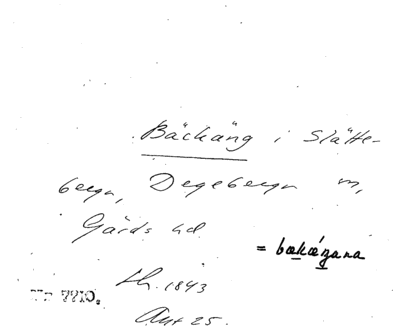 Bäckäng i Slätte-
bergn, Degebergn m,
Gärds hd
= bækæŋana
Lh. 1843
Akt 25.